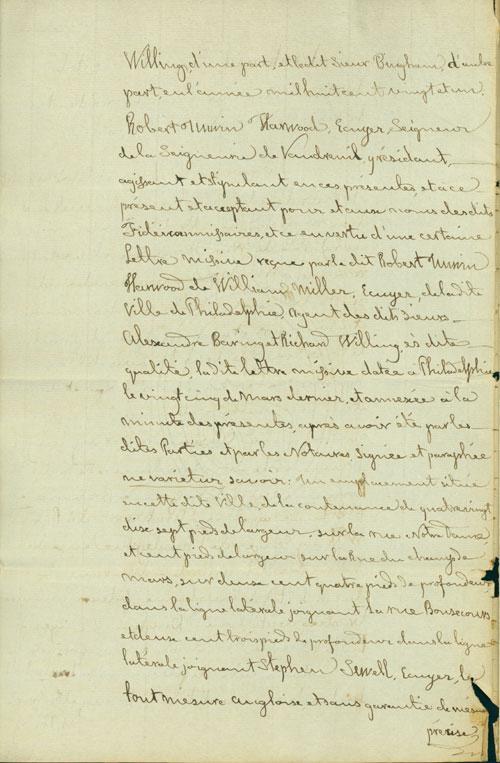 Willing, d'une part, et ledit Sieur Bingham, d'autre
part, en l'année mil huit cent vingt et un.
Robert Unwin Harwood, Ecuyer, Seigneur
de la Seigneurie de Vaudreuil, y résidant,
agissant et stipulant en ces présentes, et à ce
présent et acceptant pour et aux noms des dits
Fidéicommissaires, et ce en vertu d'une certaine
Lettre missive reçue par le dit Robert Unwin
Harwood de William Miller, Ecuyer, de la dite
Ville de Philadelphie, agent des dits Sieurs
Alexandre Baring et Richard Willing ès dite
qualité, la dite lettre missive datée à Philadelphie
le vingt cinq de Mars dernier, et annexée à la
minute des présentes, après avoir été par les
dites Parties et par les Notaires signée et paraphée
ne varietur, savoir: Un emplacement situé
en cette dite Ville, de la contenance de quatre vingt
dix sept pieds de largeur, sur la rue Notre Dame
et cent pieds de largeur sur la Rue du Champ de
Mars, sur deux cent quatre pieds de profondeur
dans la ligne latérale joignant la rue Bonsecours
et deux cent trois pieds de profondeur dans la ligne
latérale joignant Stephen Sewell, Ecuyer, le
tout mesure angloise et sans garantie de mesure
précise,